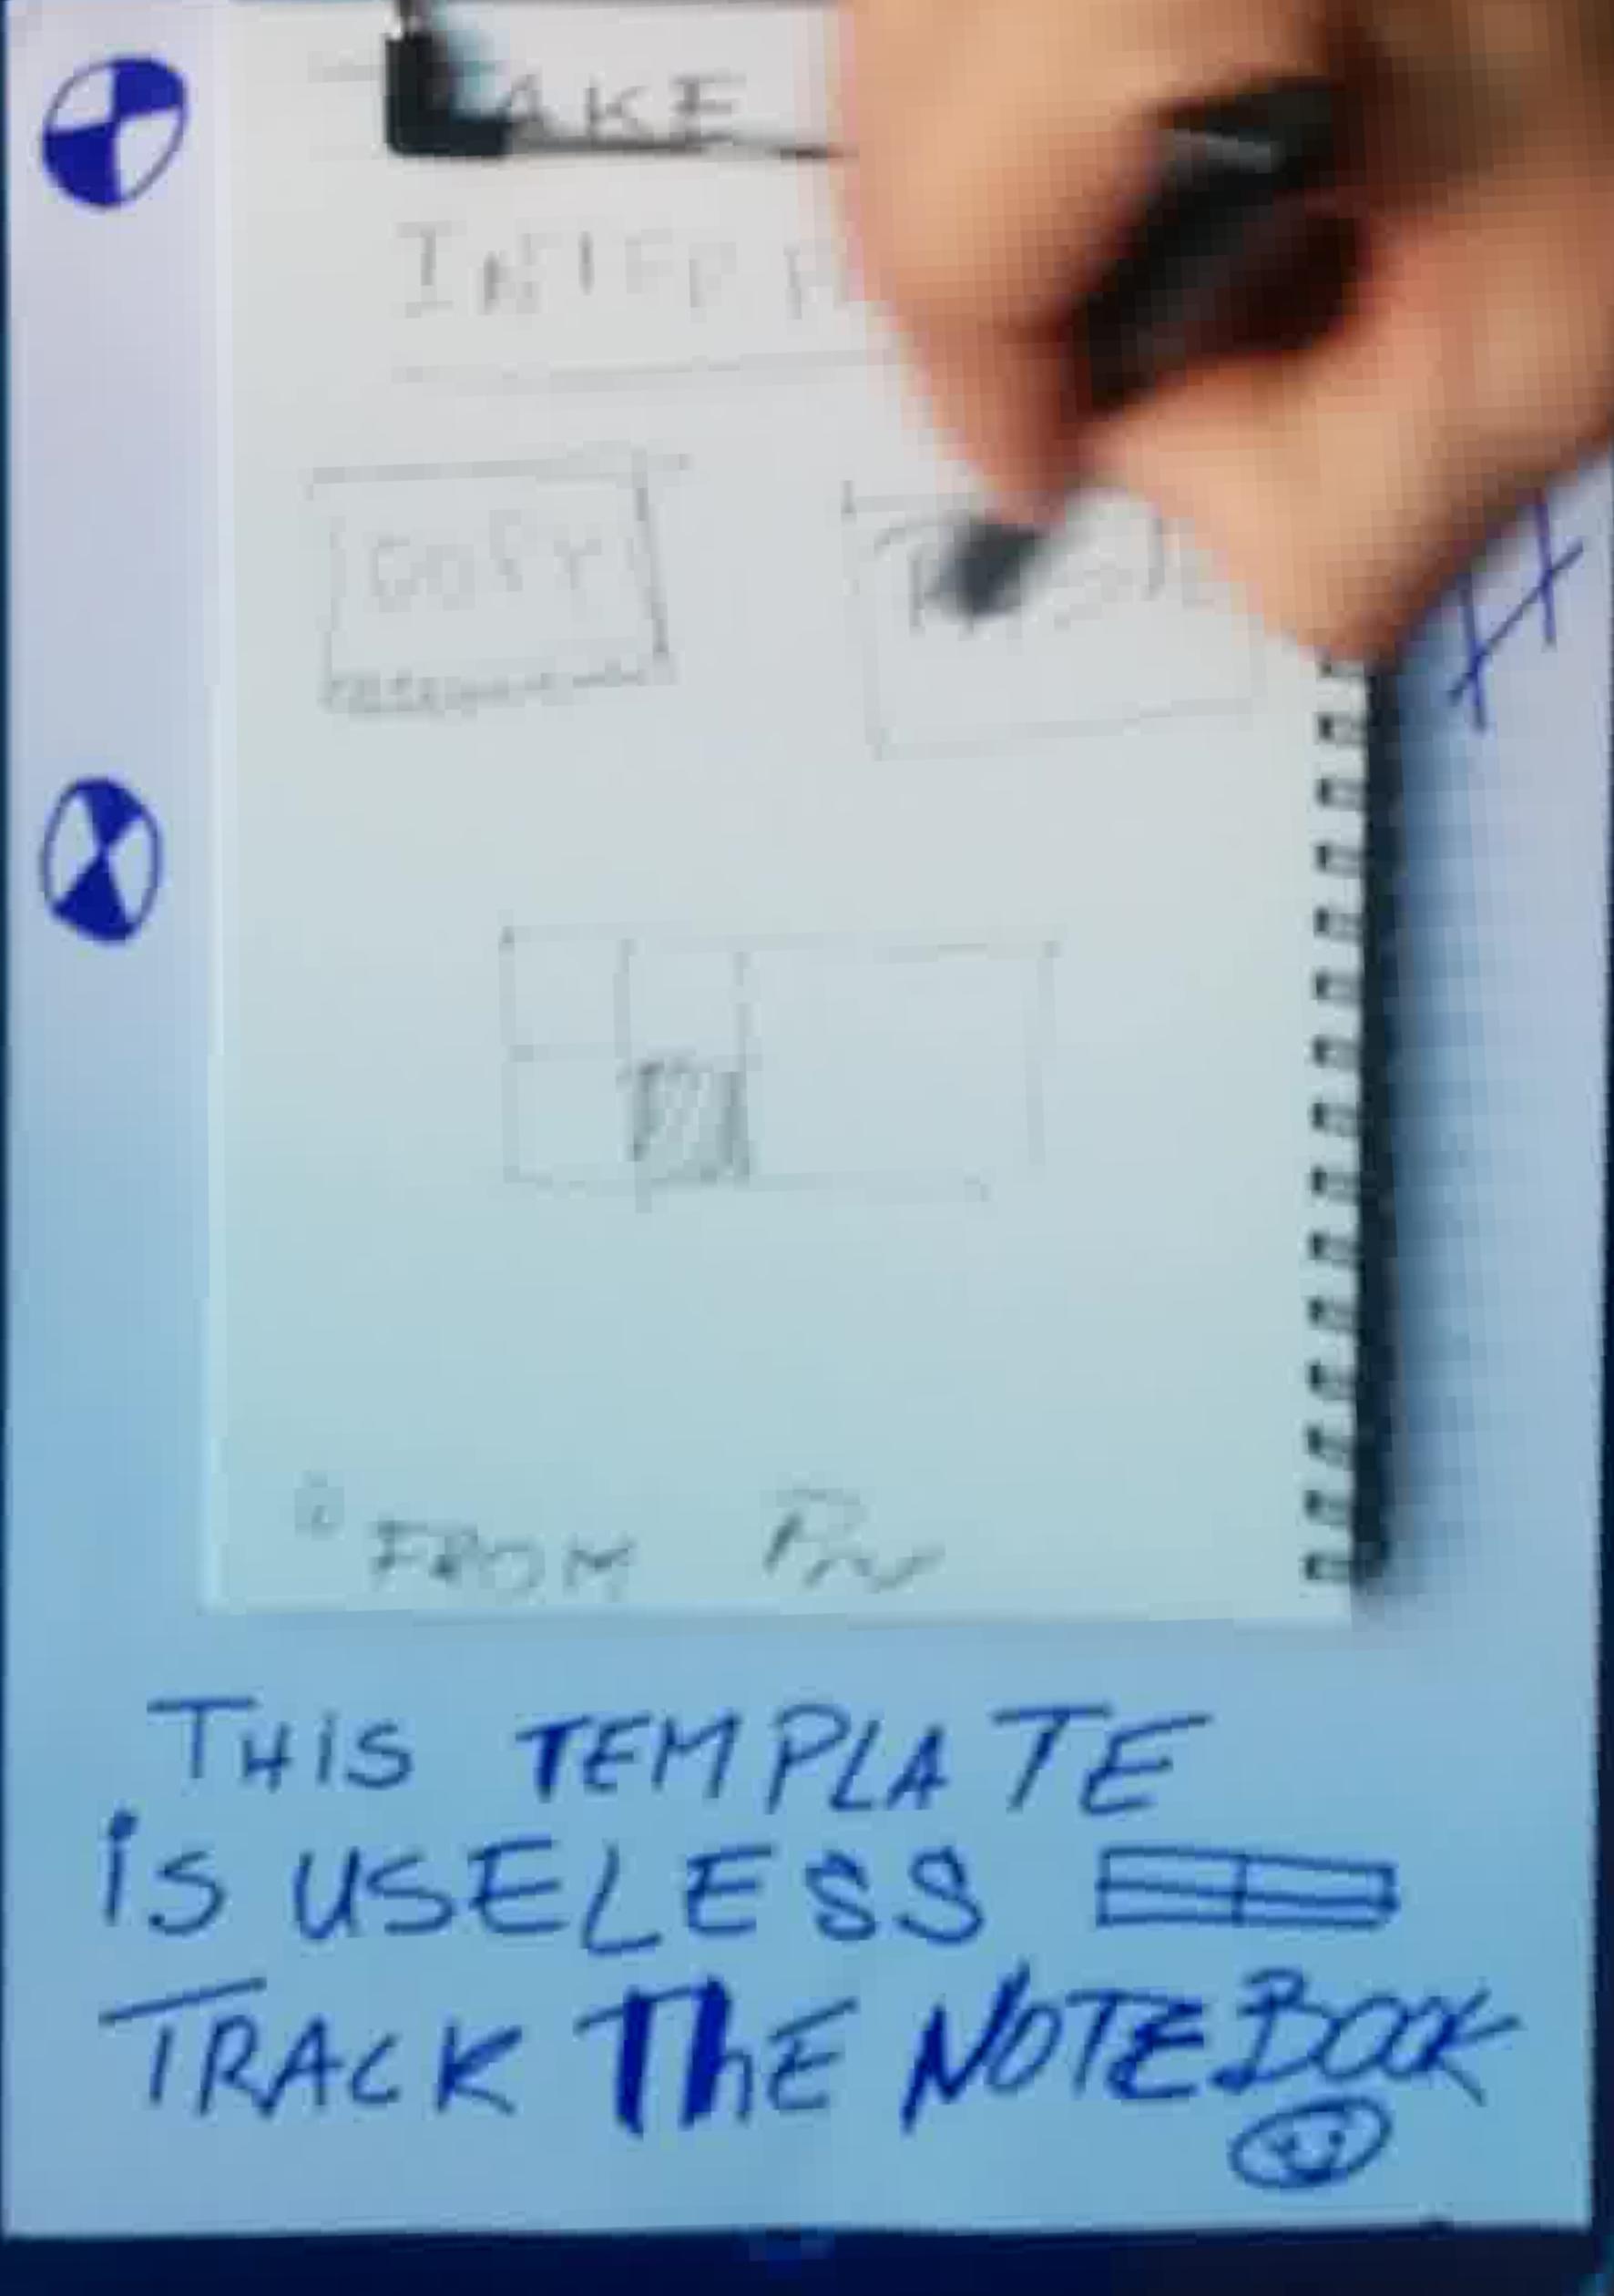 AKE
COPY
FROM
THIS TEMPLATE
is USELESS
TRACK ThE NOTEBOOK